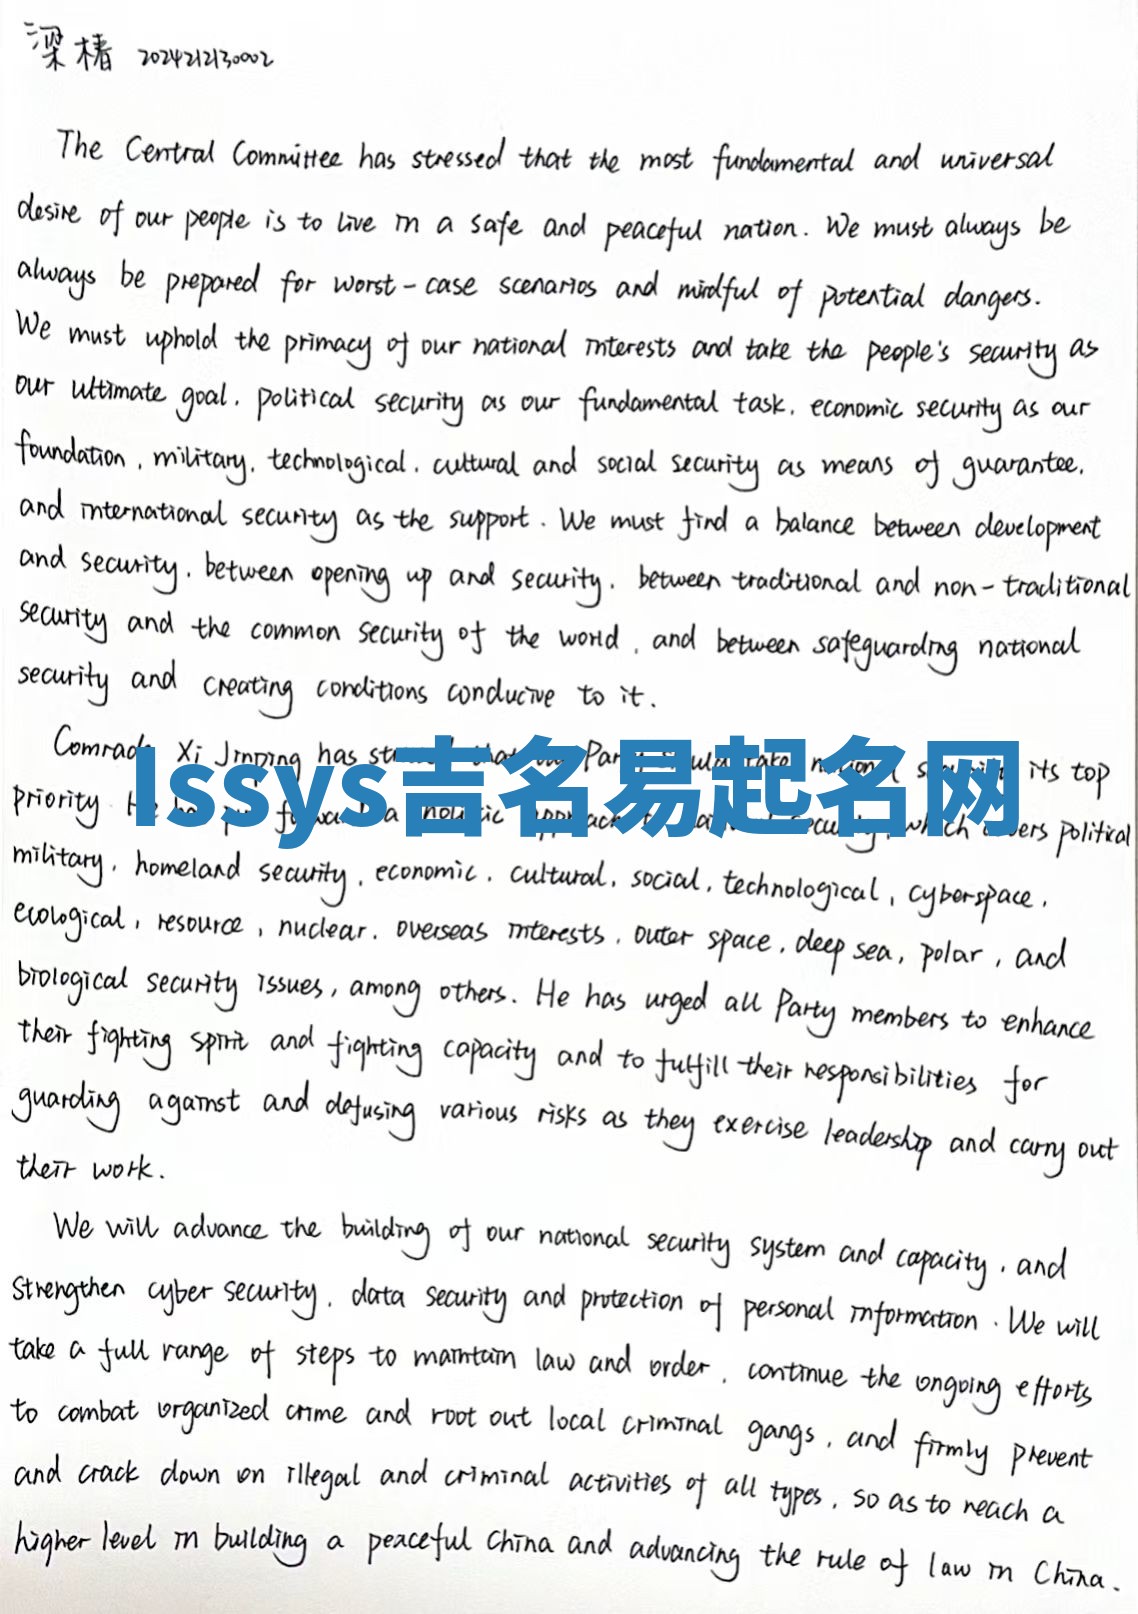 梁椿 2024212130002
The Central Committee has stressed that the most fundamental and universal
desire of our people is to live in a safe and peaceful nation. We must always be
always be prepared for worst-case scenarios and mindful of potential dangers.
We must uphold the primacy of our national interests and take the people's security as
our ultimate goal, political security as our fundamental task, economic security as our
foundation, military, technological, cultural and social security as means of guarantee,
and international security as the support. We must find a balance between development
and security, between opening up and security, between traditional and non-traditional
security and the common security of the world, and between safeguarding national
security and creating conditions conducive to it.
Comrade Xi Jinping has that Party take its top
priority. He a which covers political
Issys吉名易起名网
military, homeland security, economic, cultural, social, technological, cyberspace,
ecological, resource, nuclear, overseas interests, outer space, deep sea, polar, and
biological security issues, among others. He has urged all Party members to enhance
their fighting spirit and fighting capacity and to fulfill their responsibilities for
guarding against and defusing various risks as they exercise leadership and carry out
their work.
We will advance the building of our national security system and capacity, and
strengthen cyber security, data security and protection of personal information. We will
take a full range of steps to maintain law and order, continue the ongoing efforts
to combat organized crime and root out local criminal gangs, and firmly prevent
and crack down on illegal and criminal activities of all types, so as to reach a
higher level in building a peaceful China and advancing the rule of law in China.